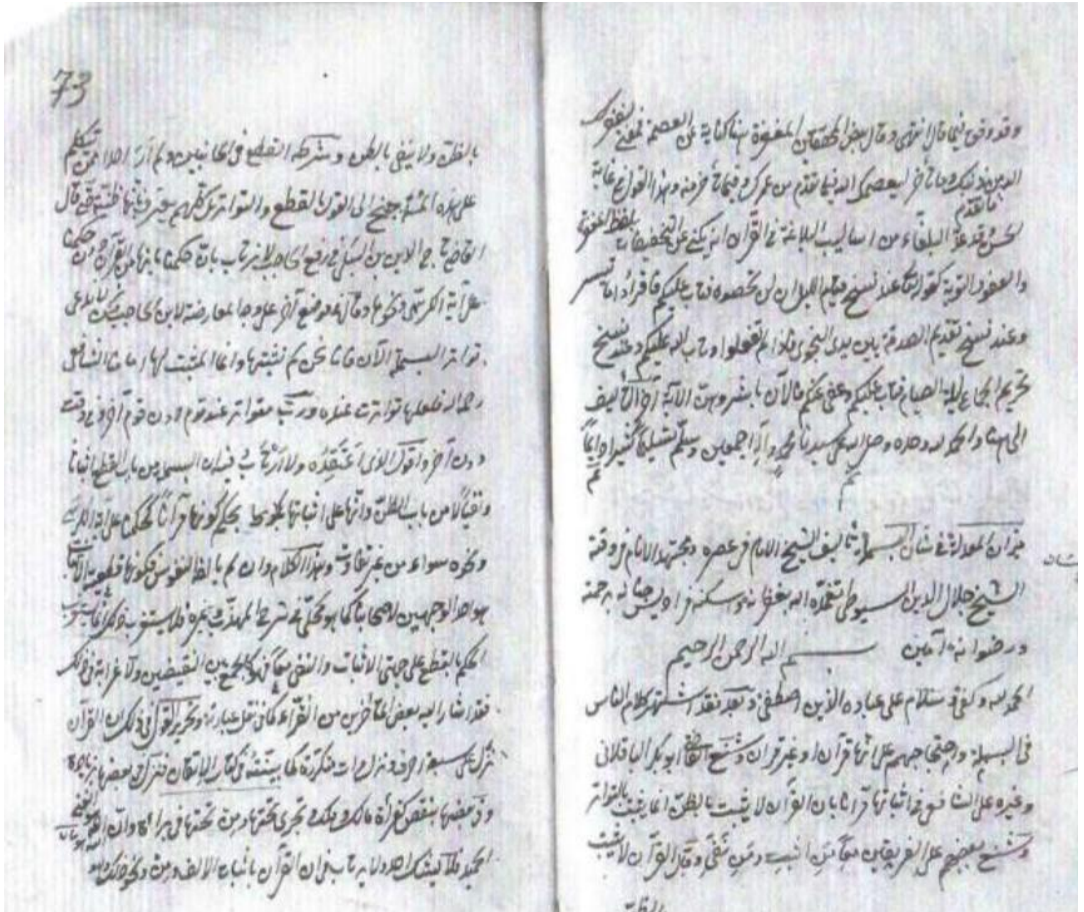 وقد وفى فيما قال انتهى وقال بعض المحققين المغفرة هنا كناية عن العصمة فمعنى ليغفر لك
الله من ذنبك وما تأخر ليعصمك الله فيما تقدم من عمرك وفيما تأخر منه وهذا القول في غاية
ما تقدم
الحسن وقد عد البلغاء من اساليب البلاغة في القرآن انه يكنى عن التخفيفات بلفظ المغفرة
والعفو والتوبة كقوله تعالى عند نسخ قيام الليل علم ان لن تحصوه فتاب عليكم فاقرأوا ما تيسر
وعند نسخ تقديم الصدقة بين يدي النجوى فاذ لم تفعلوا وتاب الله عليكم وعند نسخ
تحريم الجماع ليلة الصيام فتاب عليكم وعفى عنكم فالآن باشروهن الآية آخر التأليف
الى هنا والحمد لله وحده وصلى الله على سيدنا محمد وآله اجمعين وسلم تسليما كثيرا دائما
تم
ميزان المعدلة في شأن البسملة تأليف الشيخ الامام في عصره ومجتهد الانام في وقته
الشيخ جلال الدين السيوطي تغمده الله بغفرانه وسكنه فراديس جنانه برحمته
ورضوانه آمين بسم الله الرحمن الرحيم
الحمد لله وكفى وسلام على عباده الذين اصطفى وبعد فقد اشتهر كلام الناس
في البسملة واحتجاجهم على انها قرآن او غير قرآن وشنع القاضي ابو بكر الباقلاني
وغيره على الشافعي في اثباتها قرآنا بان القرآن لا يثبت بالظن انما يثبت بالتواتر
وشنع بعضهم على الفريقين معا من اثبت ومن نفى وقال القرآن لا يثبت
بالظن
73
بالظن ولا ينفى بالظن وشرطه القطع في الجانبين ولم أر احدا ممن تكلم
على هذه المسئلة جنح الى القول بالقطع والتواتر بل كلهم يعترف بانها ظنية حتى قال
القاضي تاج الدين بن السبكي في رفع الحاجب لا نرتاب بان حكمنا بانها من القرآن دون حكمنا
على آية الكرسي ونحوها وقال في موضع آخر على وجه المعارضة لابن الحاجب نحن لا ندعي
تواتر البسملة الآن فانا نحن لم نثبتها وانما المثبت لها امامنا الشافعي
رحمه الله فلعلها تواترت عنده ورب متواتر عند قوم دون قوم آخر وفي وقت
دون آخر واقول الذي اعتقده ولا ارتاب فيه ان البسملة من باب القطع اثباتا
ونفيا لا من باب الظن وانها على اثباتها يحكم بكونها قرآنا كالحكم على آية الكرسي
ونحوه سواء من غير تفاوت وهذا الكلام وان لم يألفه النفوس فكونها قطعية الاثبات
هو احد الوجهين لاصحابنا كما هو محكي في شرح المهذب وغيره فلا يستغرب ذلك
الحكم بالقطع على جهتي الاثبات والنفي معا كالجمع بين النقيضين ولا غرابة في ذلك
فقد اشار اليه بعض المتأخرين من القراء كما ننقل عبارته وتحرير القول في ذلك ان القرآن
نزل على سبعة احرف ونزل مرات متكررة كما بينته في كتاب الاتقان فنزل في بعضها بزيادة
وفي بعضها بنقص كقراءة مالك وملك وتجري تحتها ومن تحتها في براءة وان الله هو الغني
الحميد فلا يشك احد ولا يرتاب في ان القرآن باثبات الالف ومن وهو ونحو ذلك